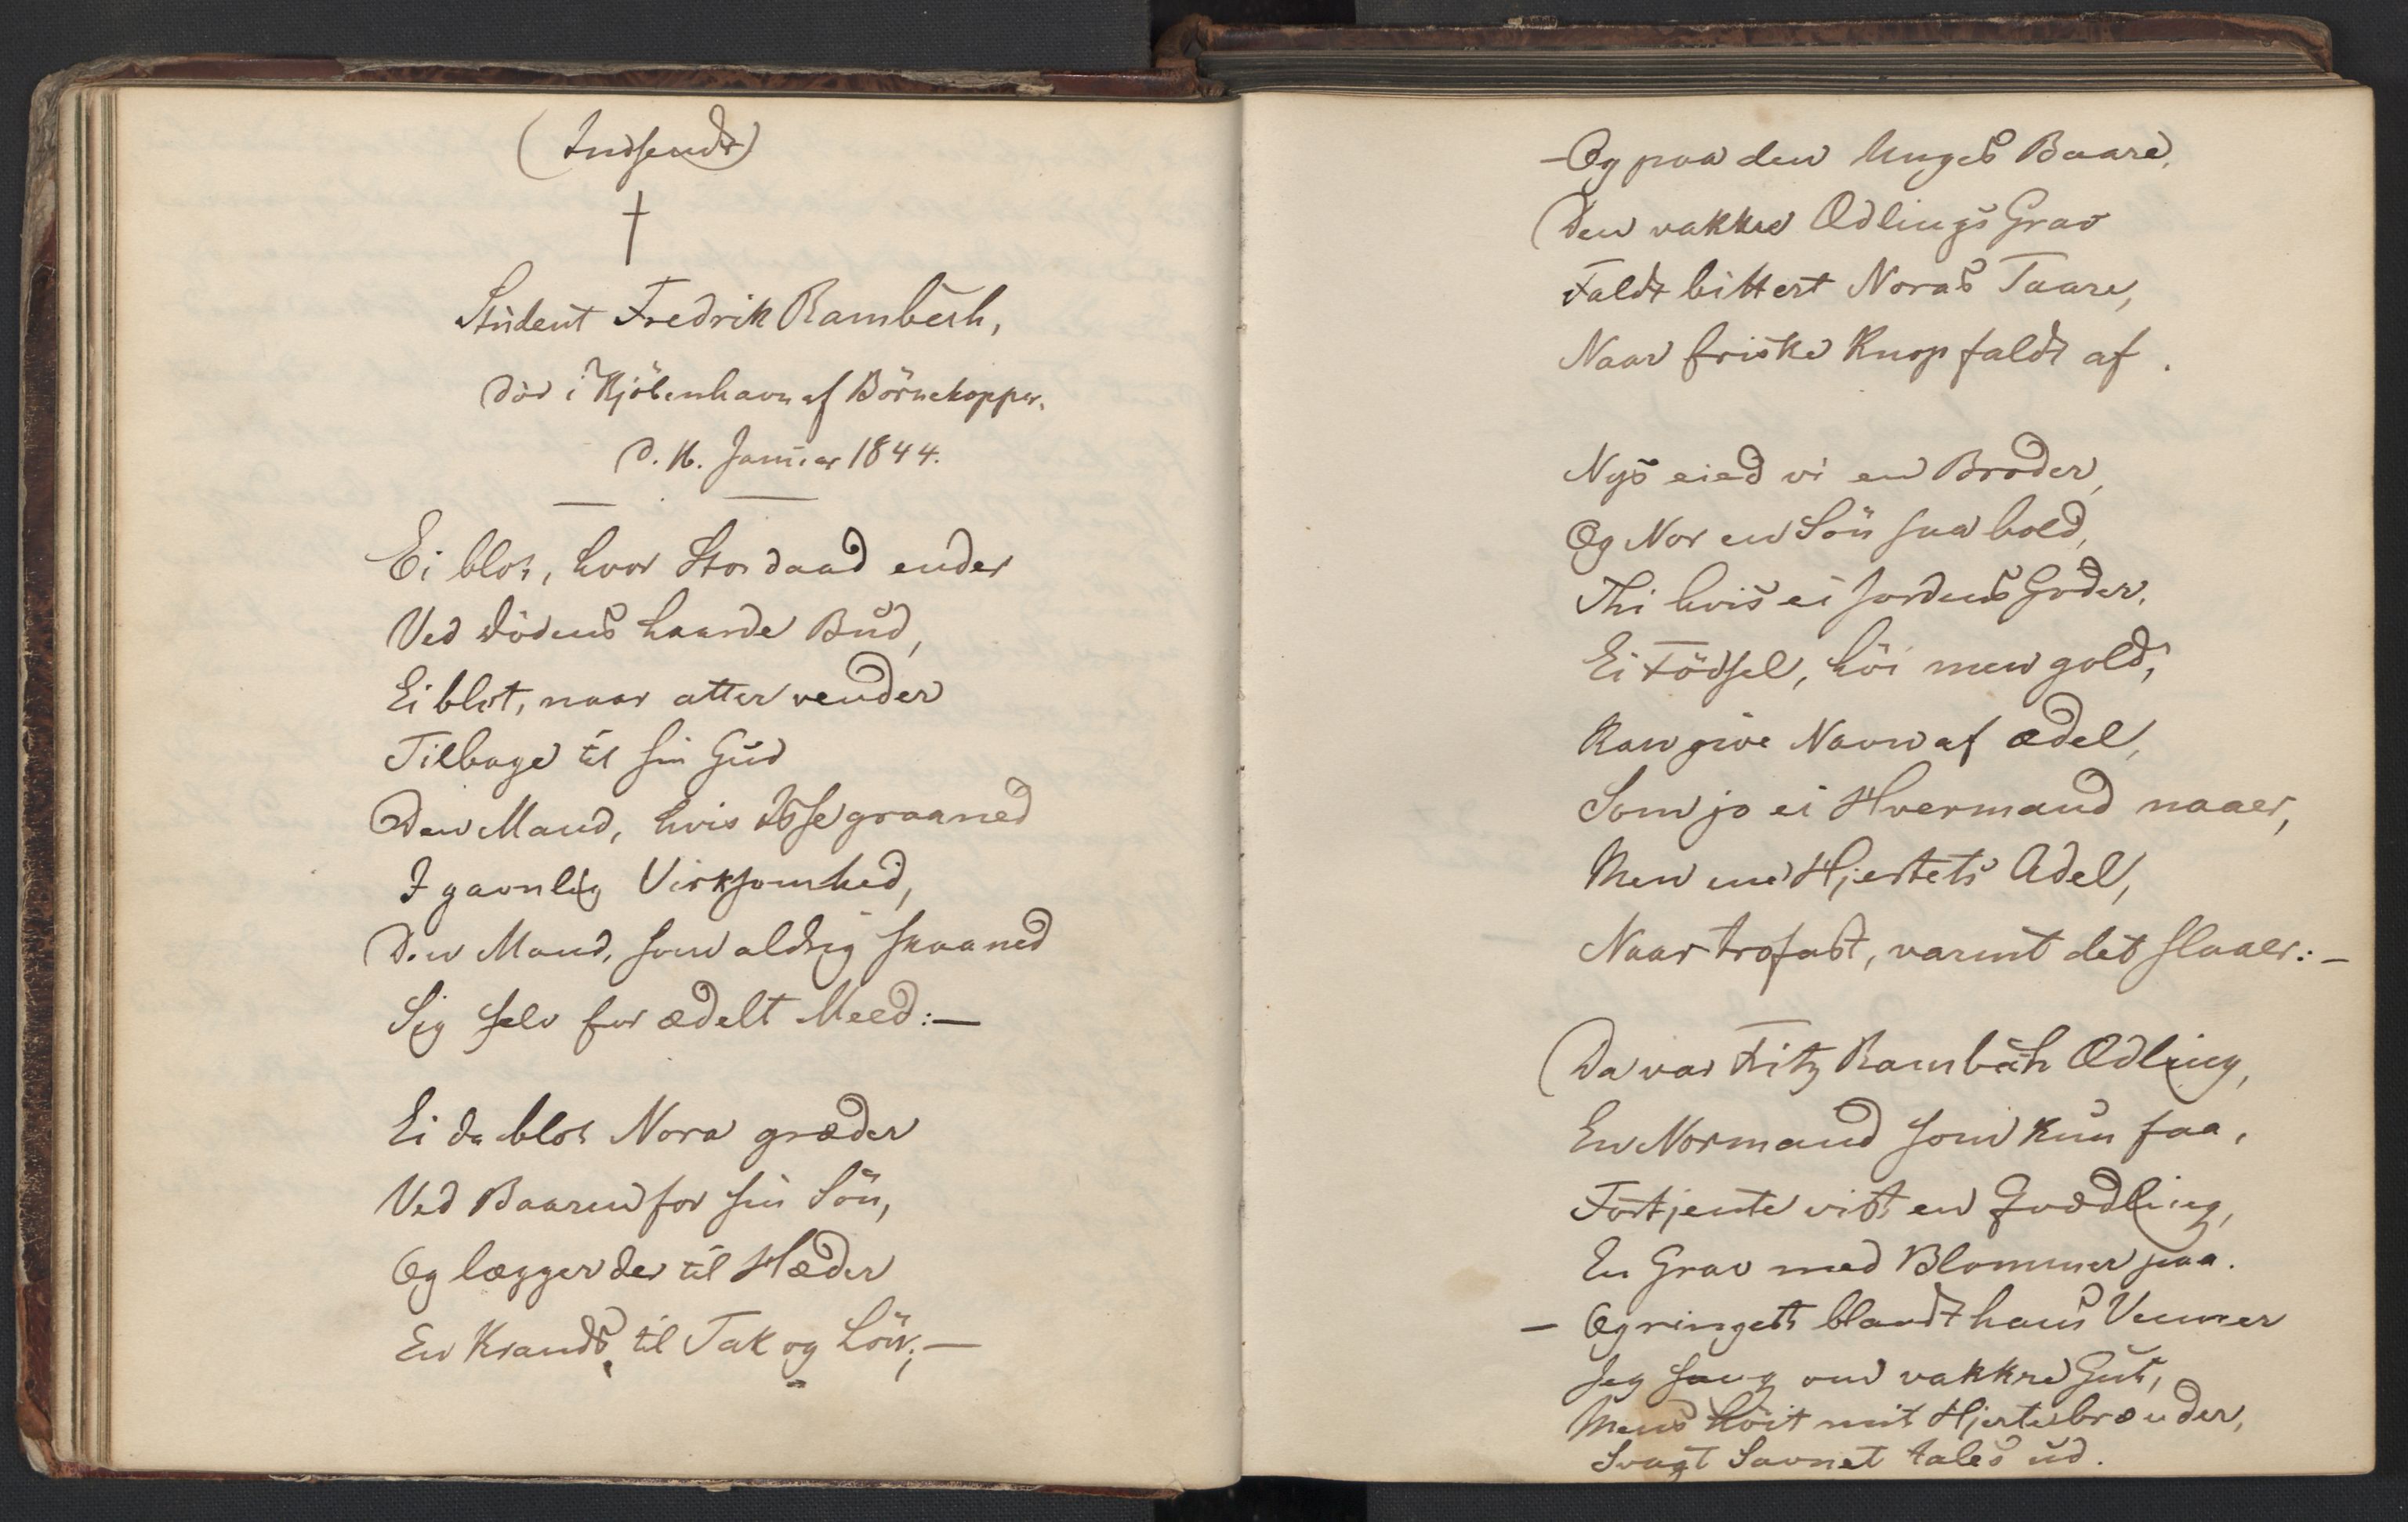 (Indsendt)
†
Student Fredrik Rambech,
död i Kjöbenhavn af Börnekopper.
d. 16. Januar 1844.
Ei blot, hvor Stordaad ender
Ved Dödens haarde Bud,
Ei blot, naar atter vender
Tilbage til sin Gud
Den Mand, hvis Isse graaned
I gavnlig Virksomhed,
Den Mand, som aldrig skaaned
Sig selv for ædelt Meed:—
Ei da blot Nora græder
Ved Baaren for sin Sön,
Og lægger der til Hæder
En Krands til Tak og Lön;—
—Og paa den Unges Baare,
Den vakkre Ædlings Grav
Faldt bittert Noras Taare,
Naar friske Knop faldt af.
Nys eied vi en Broder,
Og Nor en Sön saa bold,
Thi hvis ei Jordens Goder,
Ei Födsel, höi men gold,
Kan give Navn af ædel,
Som jo ei Hvermand naaer,
Men Hjertets Adel,
Naar trofast, varmt det slaaer:—
Da var Fritz Rambech Ædling,
En Normand som kun faa,
Fortjente vist en Qvædling,
En Grav med Blommer paa.
— Og ringest blandt hans Venner
Jeg sang om vakkre Gut,
Mens höit mit Hjerte brænder,
Svagt Savnet tales ud.